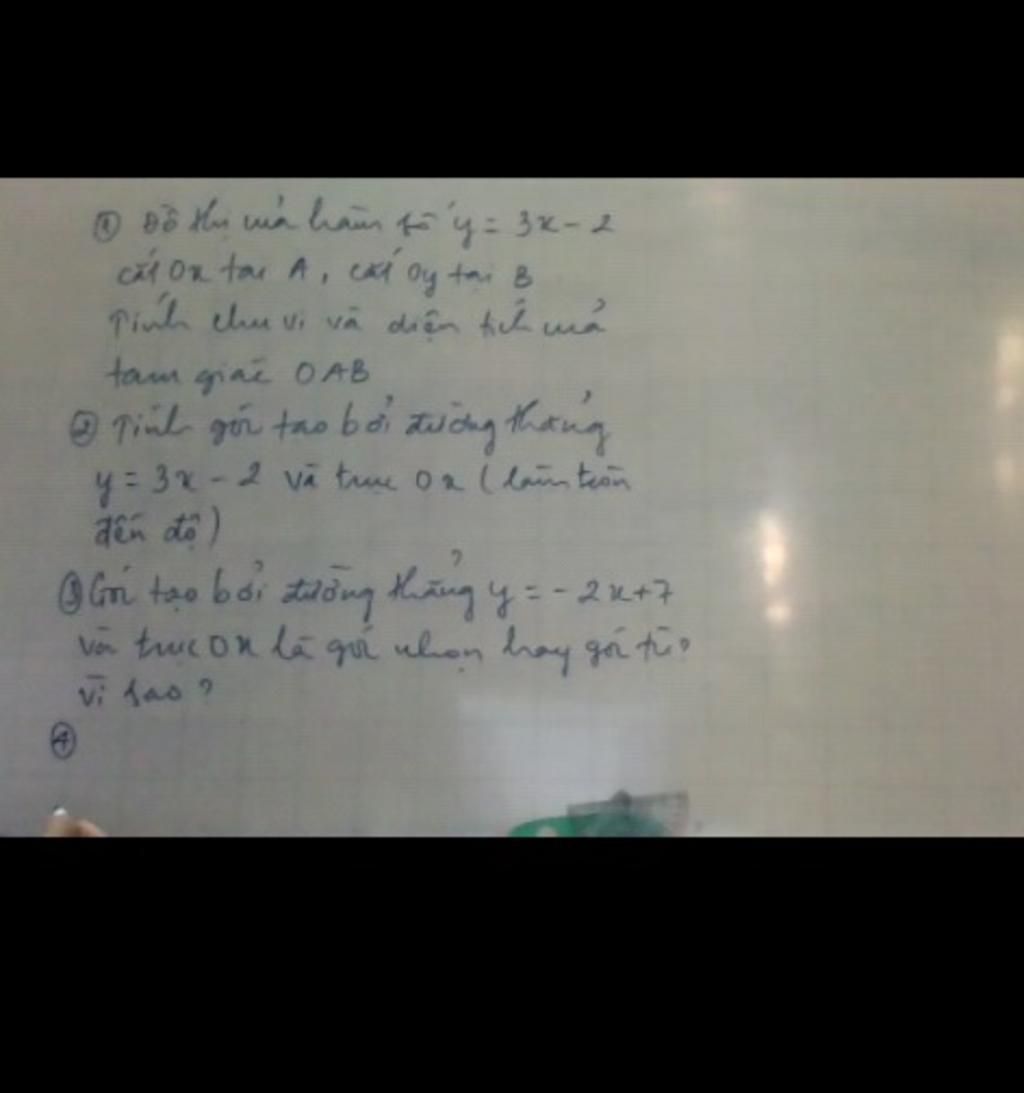 ① Đồ thị của hàm số y = 3x - 2
cắt Ox tại A, cắt Oy tại B
Tính chu vi và diện tích của
tam giác OAB
② Tính góc tạo bởi đường thẳng
y = 3x - 2 và trục Ox (làm tròn
đến độ)
③ Góc tạo bởi đường thẳng y = - 2x + 7
và trục Ox là góc nhọn hay góc tù?
vì sao?
④